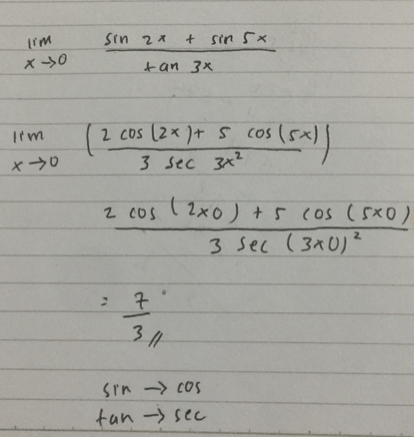 lim x→0 (sin 2x + sin 5x) / (tan 3x)
lim x→0 ( (2 cos (2x) + 5 cos (5x)) / (3 sec 3x²) )
(2 cos (2x0) + 5 cos (5x0)) / (3 sec (3x0)²)
= 7/3 //
sin → cos
tan → sec